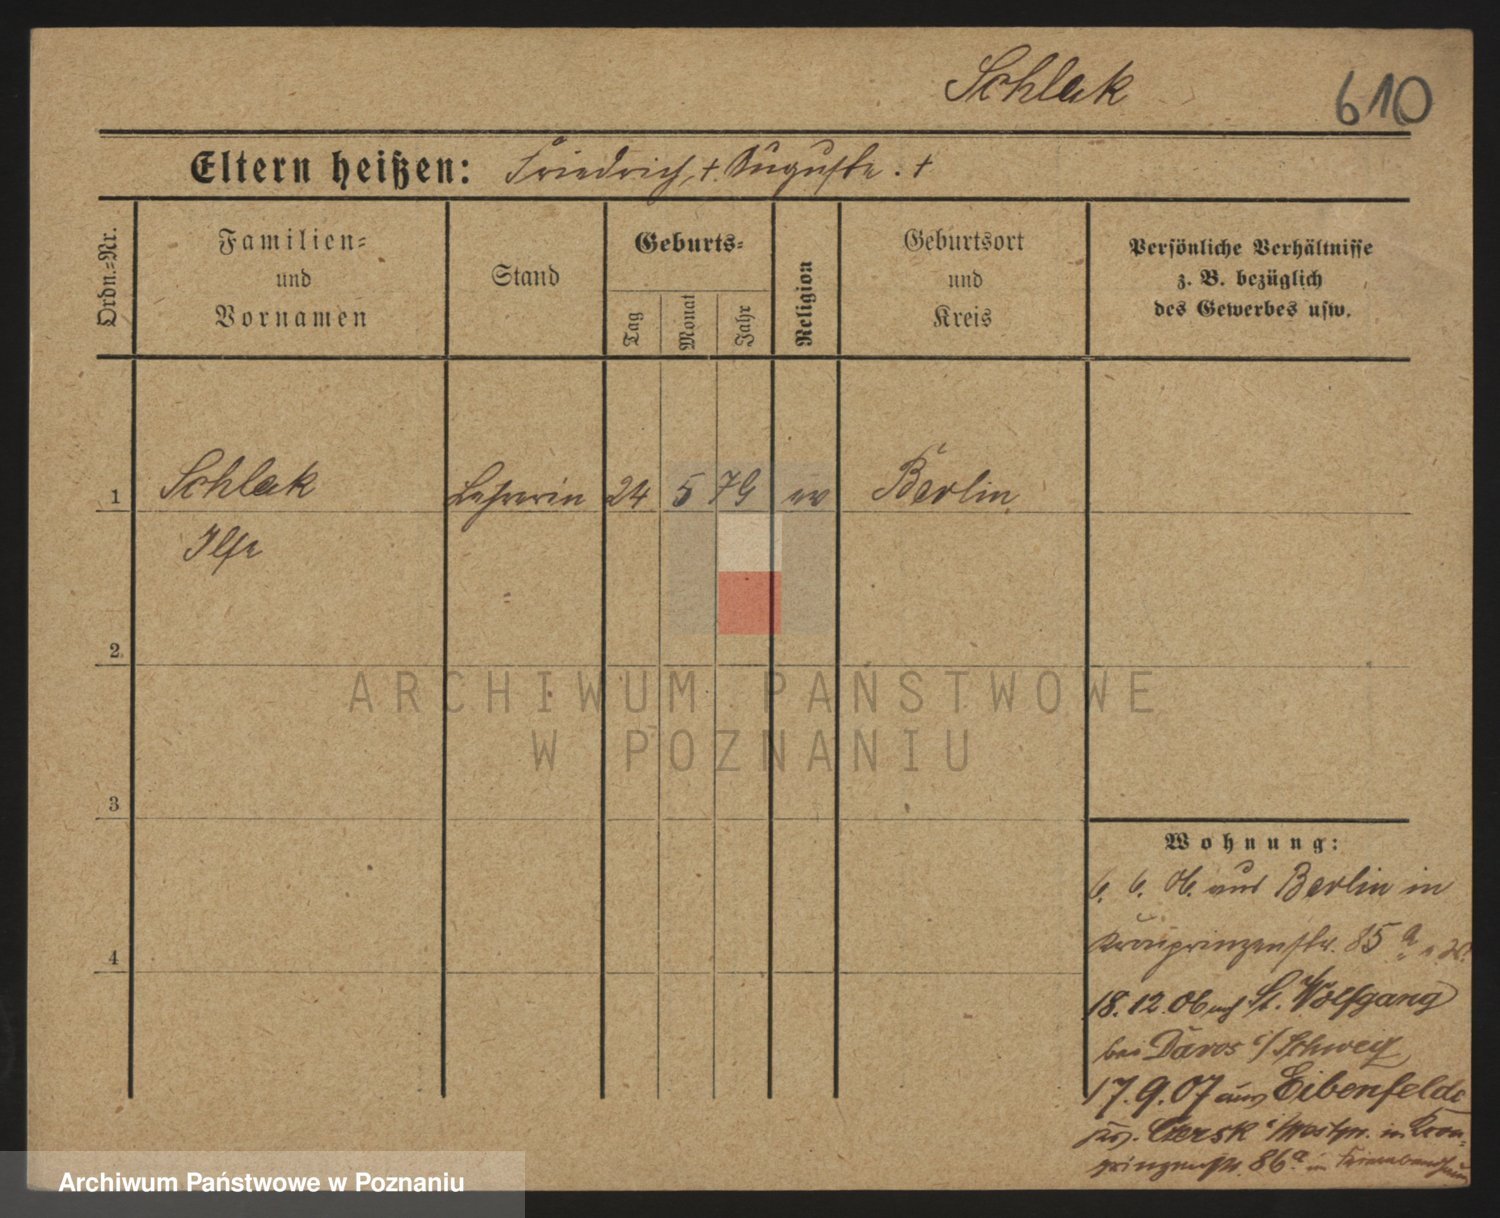 Schlak
610
Eltern heißen: Friedrich, +. Auguste. +
Ordn.=Nr.
Familien=
und
Vornamen
Stand
Geburts=
Tag
Monat
Jahr
Religion
Geburtsort
und
Kreis
Persönliche Verhältnisse
z. B. bezüglich
des Gewerbes usw.
1 Schlak Lehrerin 24 5 79 ev Berlin
Ilse
2.
ARCHIWUM PAŃSTWOWE
W POZNANIU
3
Wohnung:
6. 6. 06. aus Berlin in
Kronprinzenstr. 85 a
4
18.12.06 nch St. Wolfgang
bei Davos i/Schweiz
17.9.07 aus Eibenfelde
Czersk i/Westpr. in Kron=
prinzenstr. 86 a
Archiwum Państwowe w Poznaniu